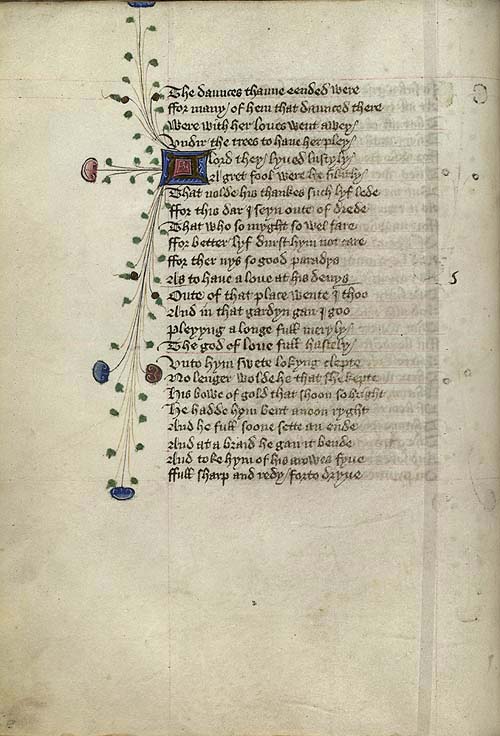 The daunces thanne eended were
ffor many / of hem that daunced there
Were with her loues went awey /
Vndir the trees to haue her pley /
A lord they / lyued lustyly /
A gret fool were he sikirly /
That nolde his thankes such lyf lede
ffor this dar I seyn oute of drede
That who so myght so wel fare
ffor better lyf durst hym not care
ffor ther nys so good paradys
As to haue a loue at his deuys
Oute of that place wente I thoo
And in that gardyn gan I goo
Pleyyng a longe full meryly /
The god of loue full hastely /
Vnto hym swete lokyng clepte
No lenger wolde he that she kepte
His bowe of gold that shoon so bright
He hadde hym bent anoon ryght
And he full soone sette an ende
And at a braid he gan it bende
And toke hym of his arowes fyue
ffull sharp and redy / forto dryue
5